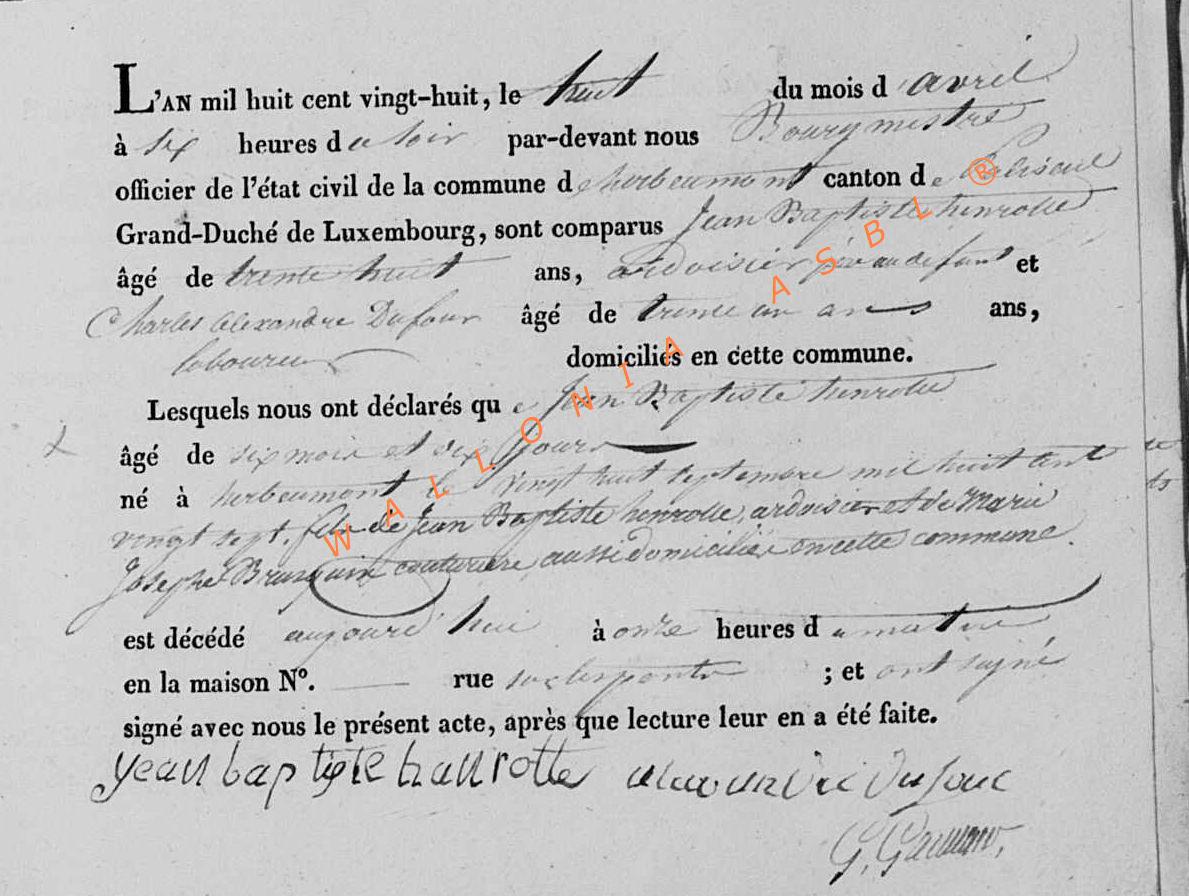 L'AN mil huit cent vingt-huit, le huit du mois d'avril
à six heures du soir par-devant nous Bourgmestre
officier de l'état civil de la commune d'herbeumont canton de Paliseul
Grand-Duché de Luxembourg, sont comparus Jean Baptiste henrotte
âgé de trente huit ans, ardoisier père au defunt et
Charles alexandre Dufour âgé de trente un ans ans,
laboureur domiciliés en cette commune.
Lesquels nous ont déclarés que Jean Baptiste henrotte
âgé de six mois et dix jours
né à herbeumont le vingt huit septembre mil huit cent
vingt sept. fils de Jean Baptiste henrotte, ardoisier et de Marie
Josephe Brasquin couturière, aussi domiciliée en cette commune.
est décédé aujourd'hui à onze heures du matin
en la maison N°. — rue ; et ont signé
signé avec nous le présent acte, après que lecture leur en a été faite.
yean baptiste hanrotte Dufour
G.
WALLONIA ASBL ®